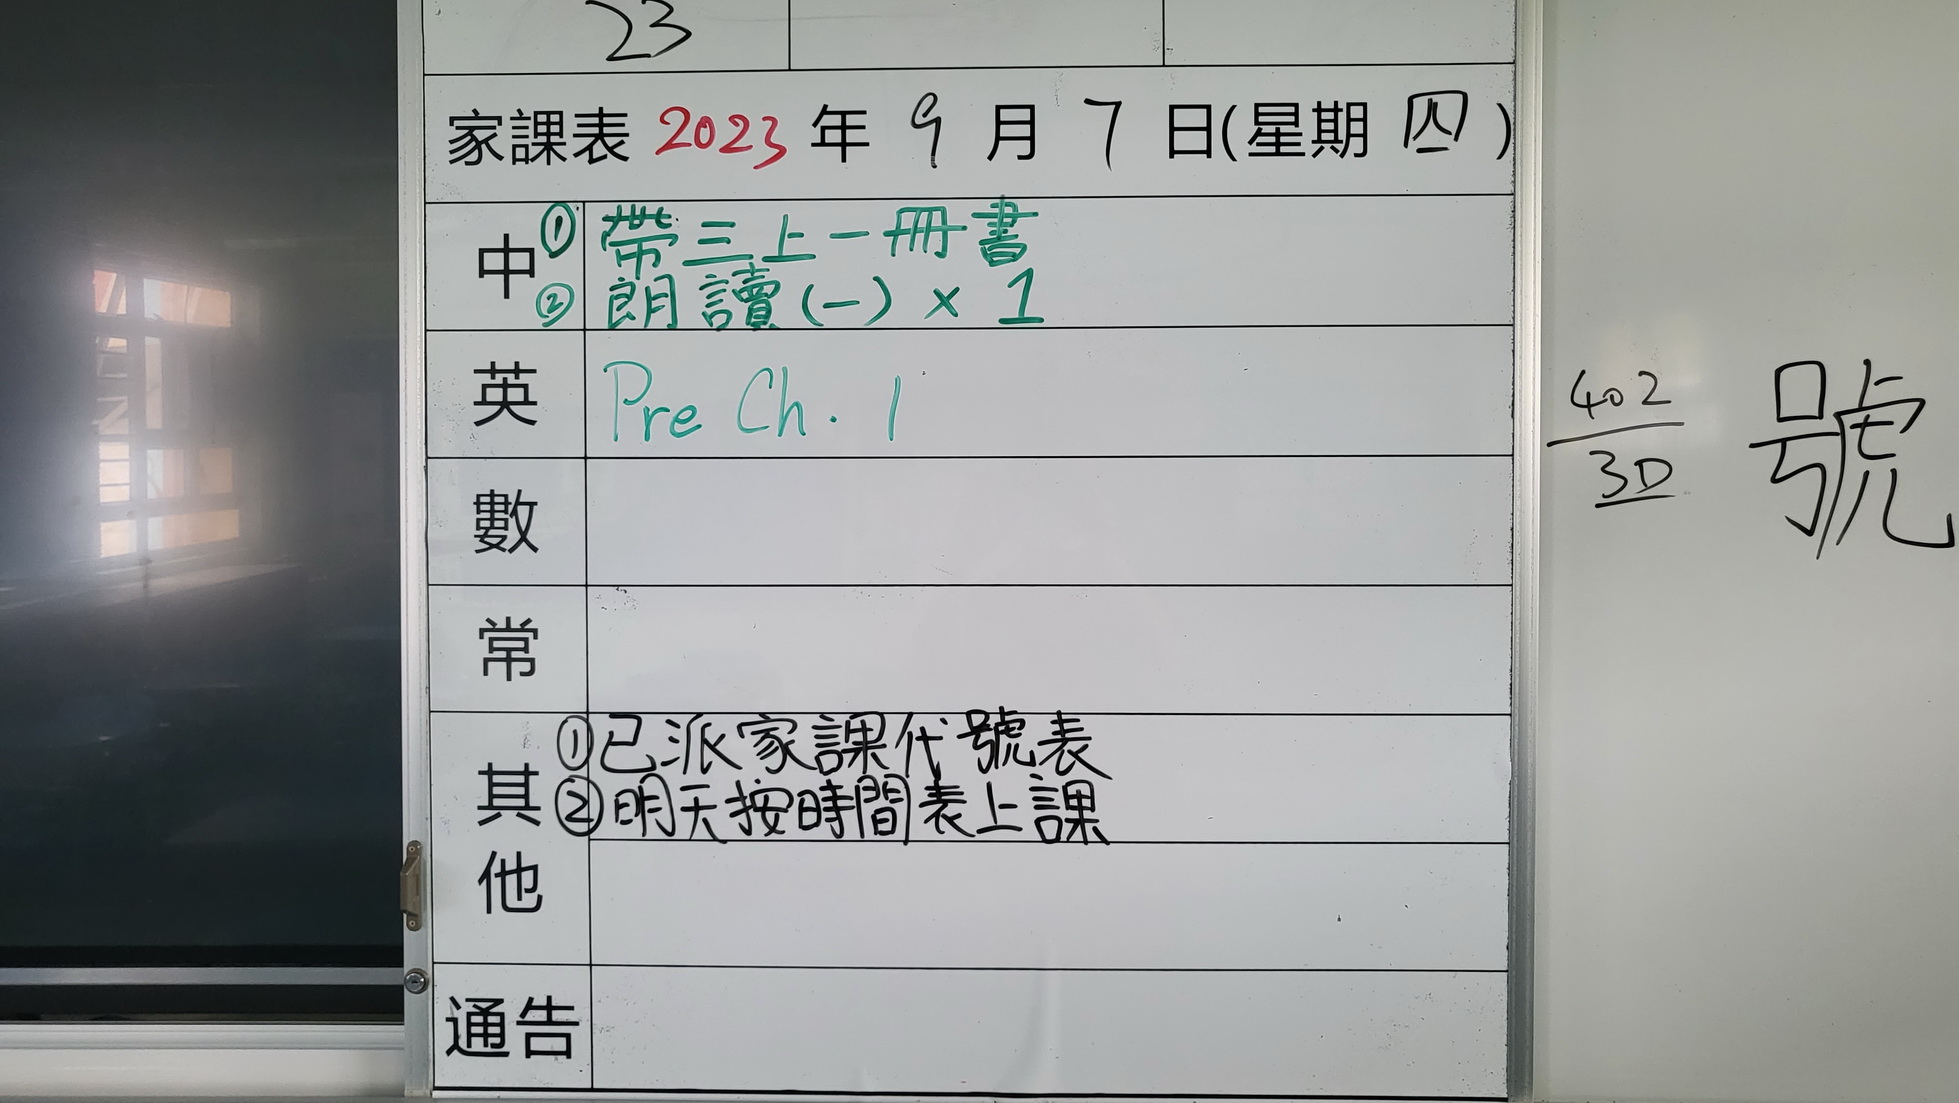 23
家課表 2023 年 9 月 7 日(星期 四)
中 ① 帶三上一冊書
② 朗讀(一) x 1
英 Pre Ch. 1
數
常
其他 ①已派家課代號表
②明天按時間表上課
通告
402
3D
號